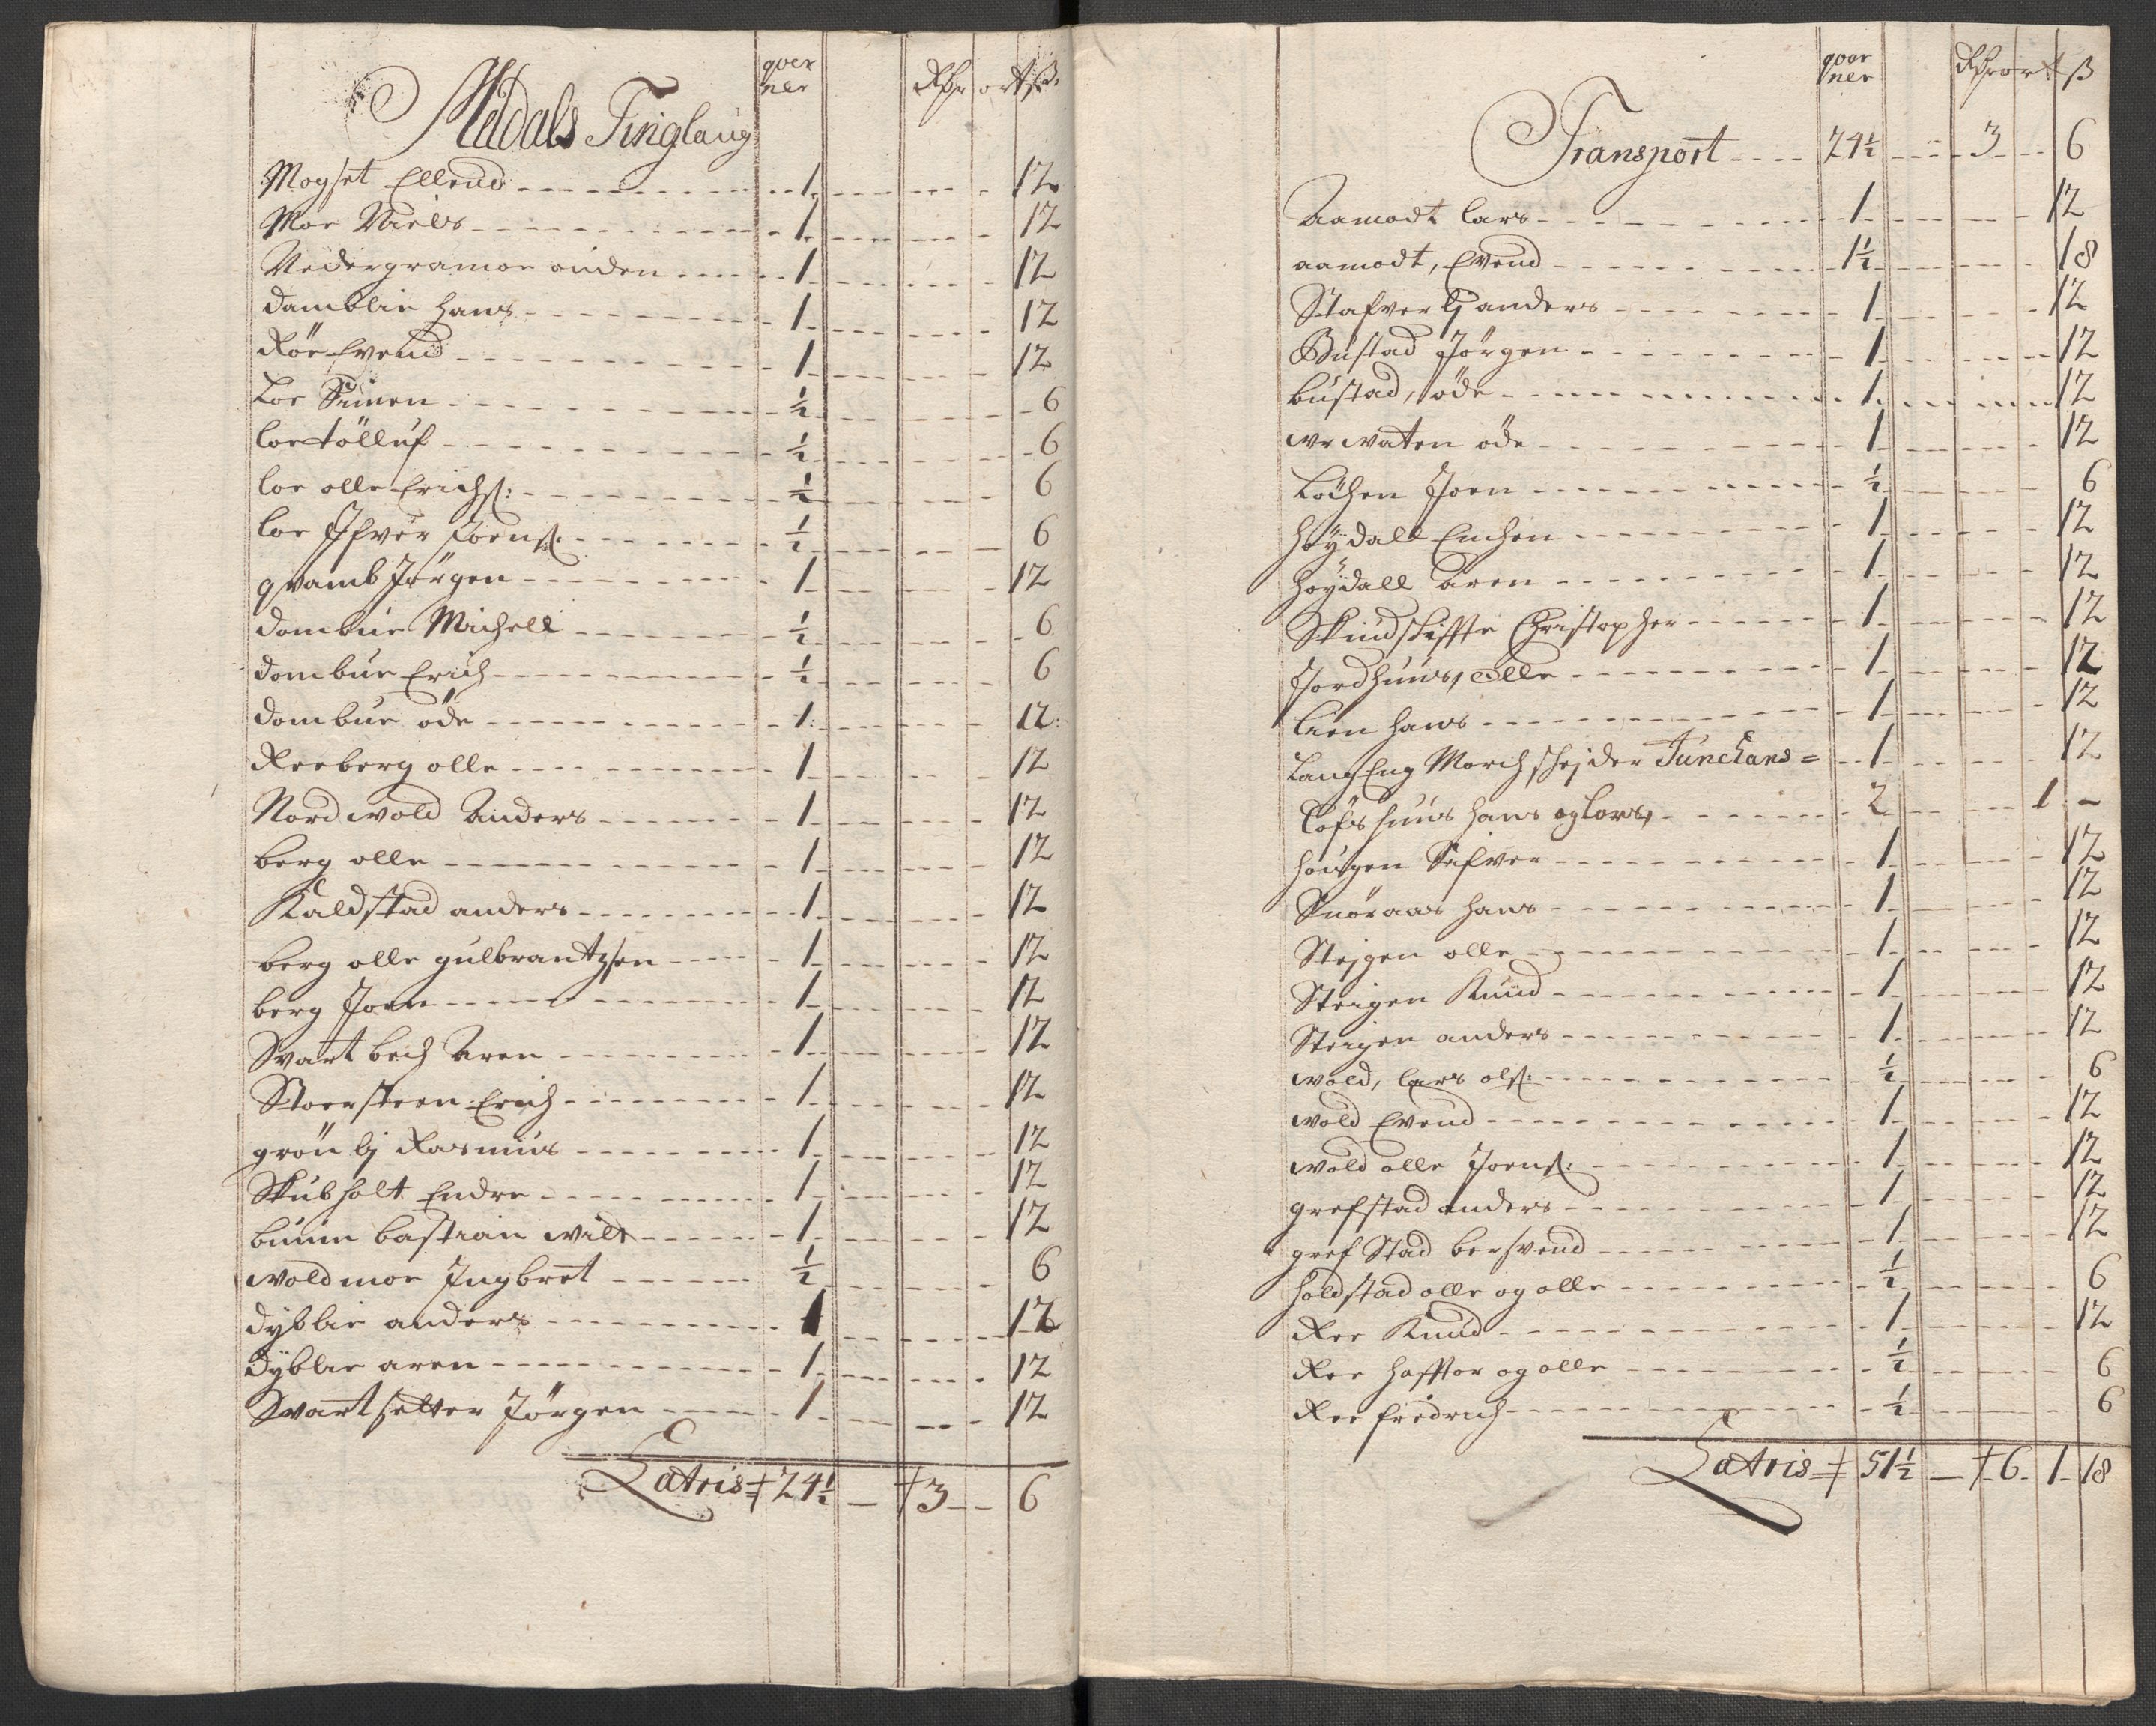 qver
ner Rdr ort ß:
Meldals Tinglaug
Mogset Ellend 1 12
Moe Niels 1 12
Nedergramoe onden 1 12
damblie hans 1 12
Röe Evend 1 12
Loe Simen ½ 6
loe tölluf ½ 6
loe olle Erichs: ½ 6
loe Ifver Joens: ½ 6
qvamb Jörgen 1 12
dombue Michell ½ 6
dombue Erich ½ 6
dombue öde 1: 12:
Reeberg olle 1 12
Nordwold Anders 1 12
berg olle 1 12
Kaldstad anders 1 12
berg olle gulbrantzsen 1 12
berg Joen 1 12
Svartbech Aren 1 12
Stoersteen Erich 1 12
grönlj Rasmus 1 12
Skubholt Endre 1 12
buum bastian wilt 1 12
woldmoe Ingbret ½ 6
dyblie anders 1 12
dyblie aren 1 12
Svartsetter Jörgen 1 12
Latris 24½ 3 6
qver
ner Rdr ort ß
Transport 24½ 3 6
Aamodt lars 1 12
aamodt, Evend 1½ 18
Stafverlj anders 1 12
Bustad Jörgen 1 12
bustad, öde 1 12
wrwaten öde 1 12
Löchen Joen ½ 6
höydall Enchen 1 12
höydall aren 1 12
Skindskiffte Christopher 1 12
Jordhuus, olle 1 12
lien hans 1 12
Lang Eng Morchskejder Junchans 1 12
löfshuus hans og lars, 2 1 -
hougen Sifver 1 12
Snöraas hans 1 12
Stejgen olle 1 12
Steigen Knud 1 12
Steigen anders 1 12
wold, lars ols: ½ 6
wold Evend 1 12
wold olle Joens: 1 12
grefstad anders 1 12
grefstad bersvend 1 12
holdstad olle og olle ½ 6
Ree Knud 1 12
Ree hafftor og olle ½ 6
Ree fredrich ½ 6
Latris 51½ 6 1 18